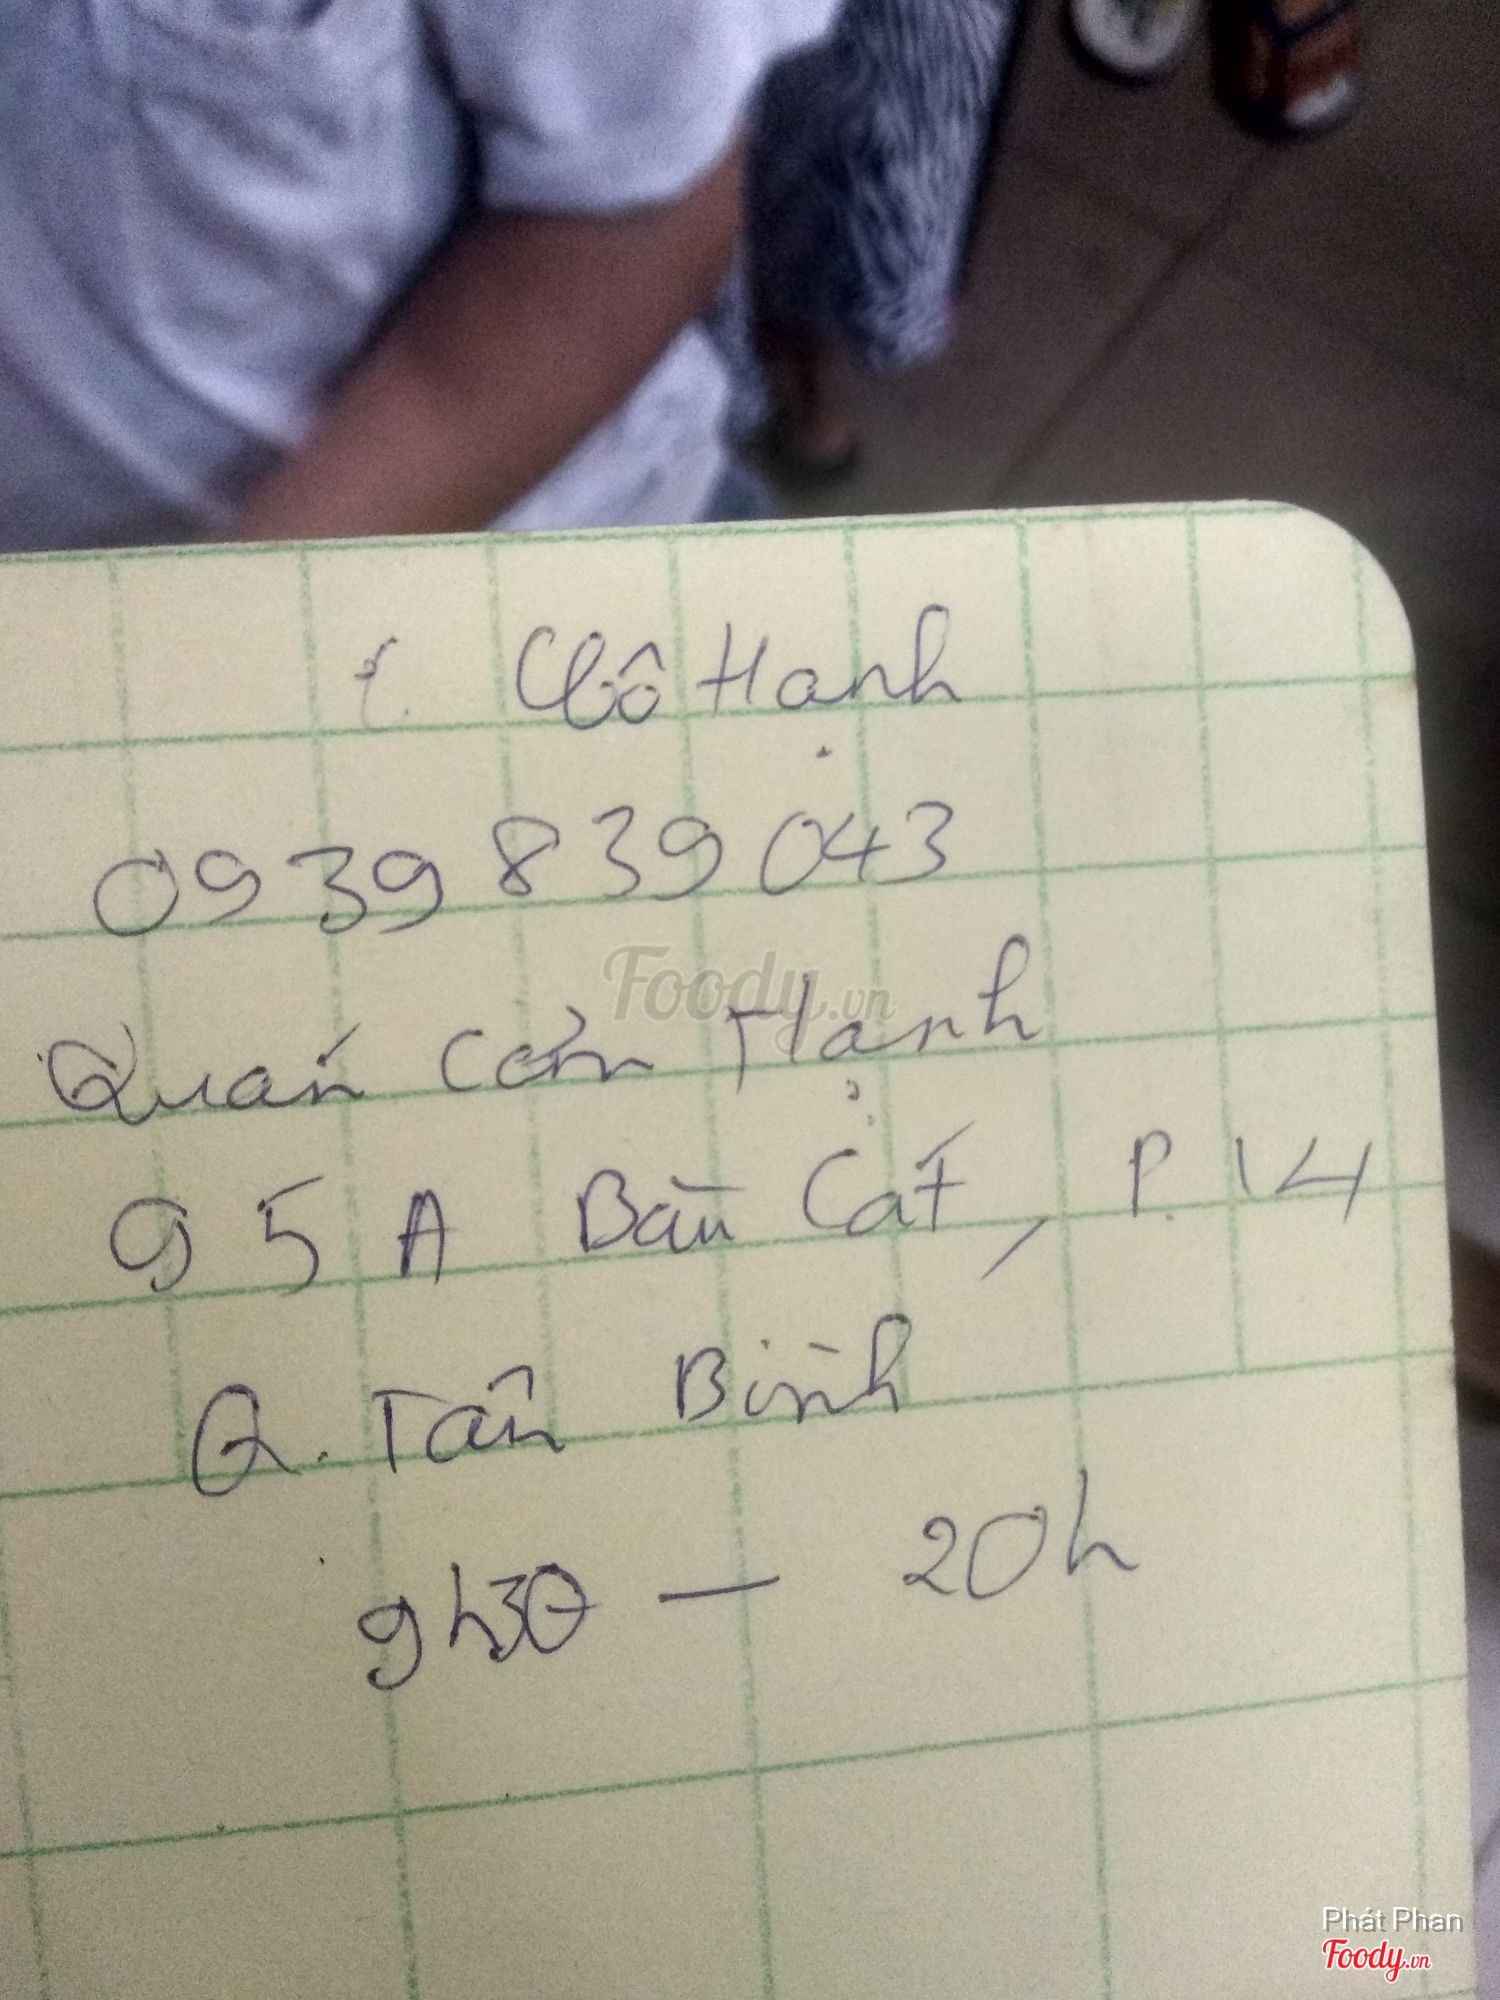 Cô Hạnh
0939 839 043
Foody.vn
Quán cơm Hạnh
95A Bàu Cát, P. 14
Q. Tân Bình
9h30 — 20h
Phát Phan
Foody.vn